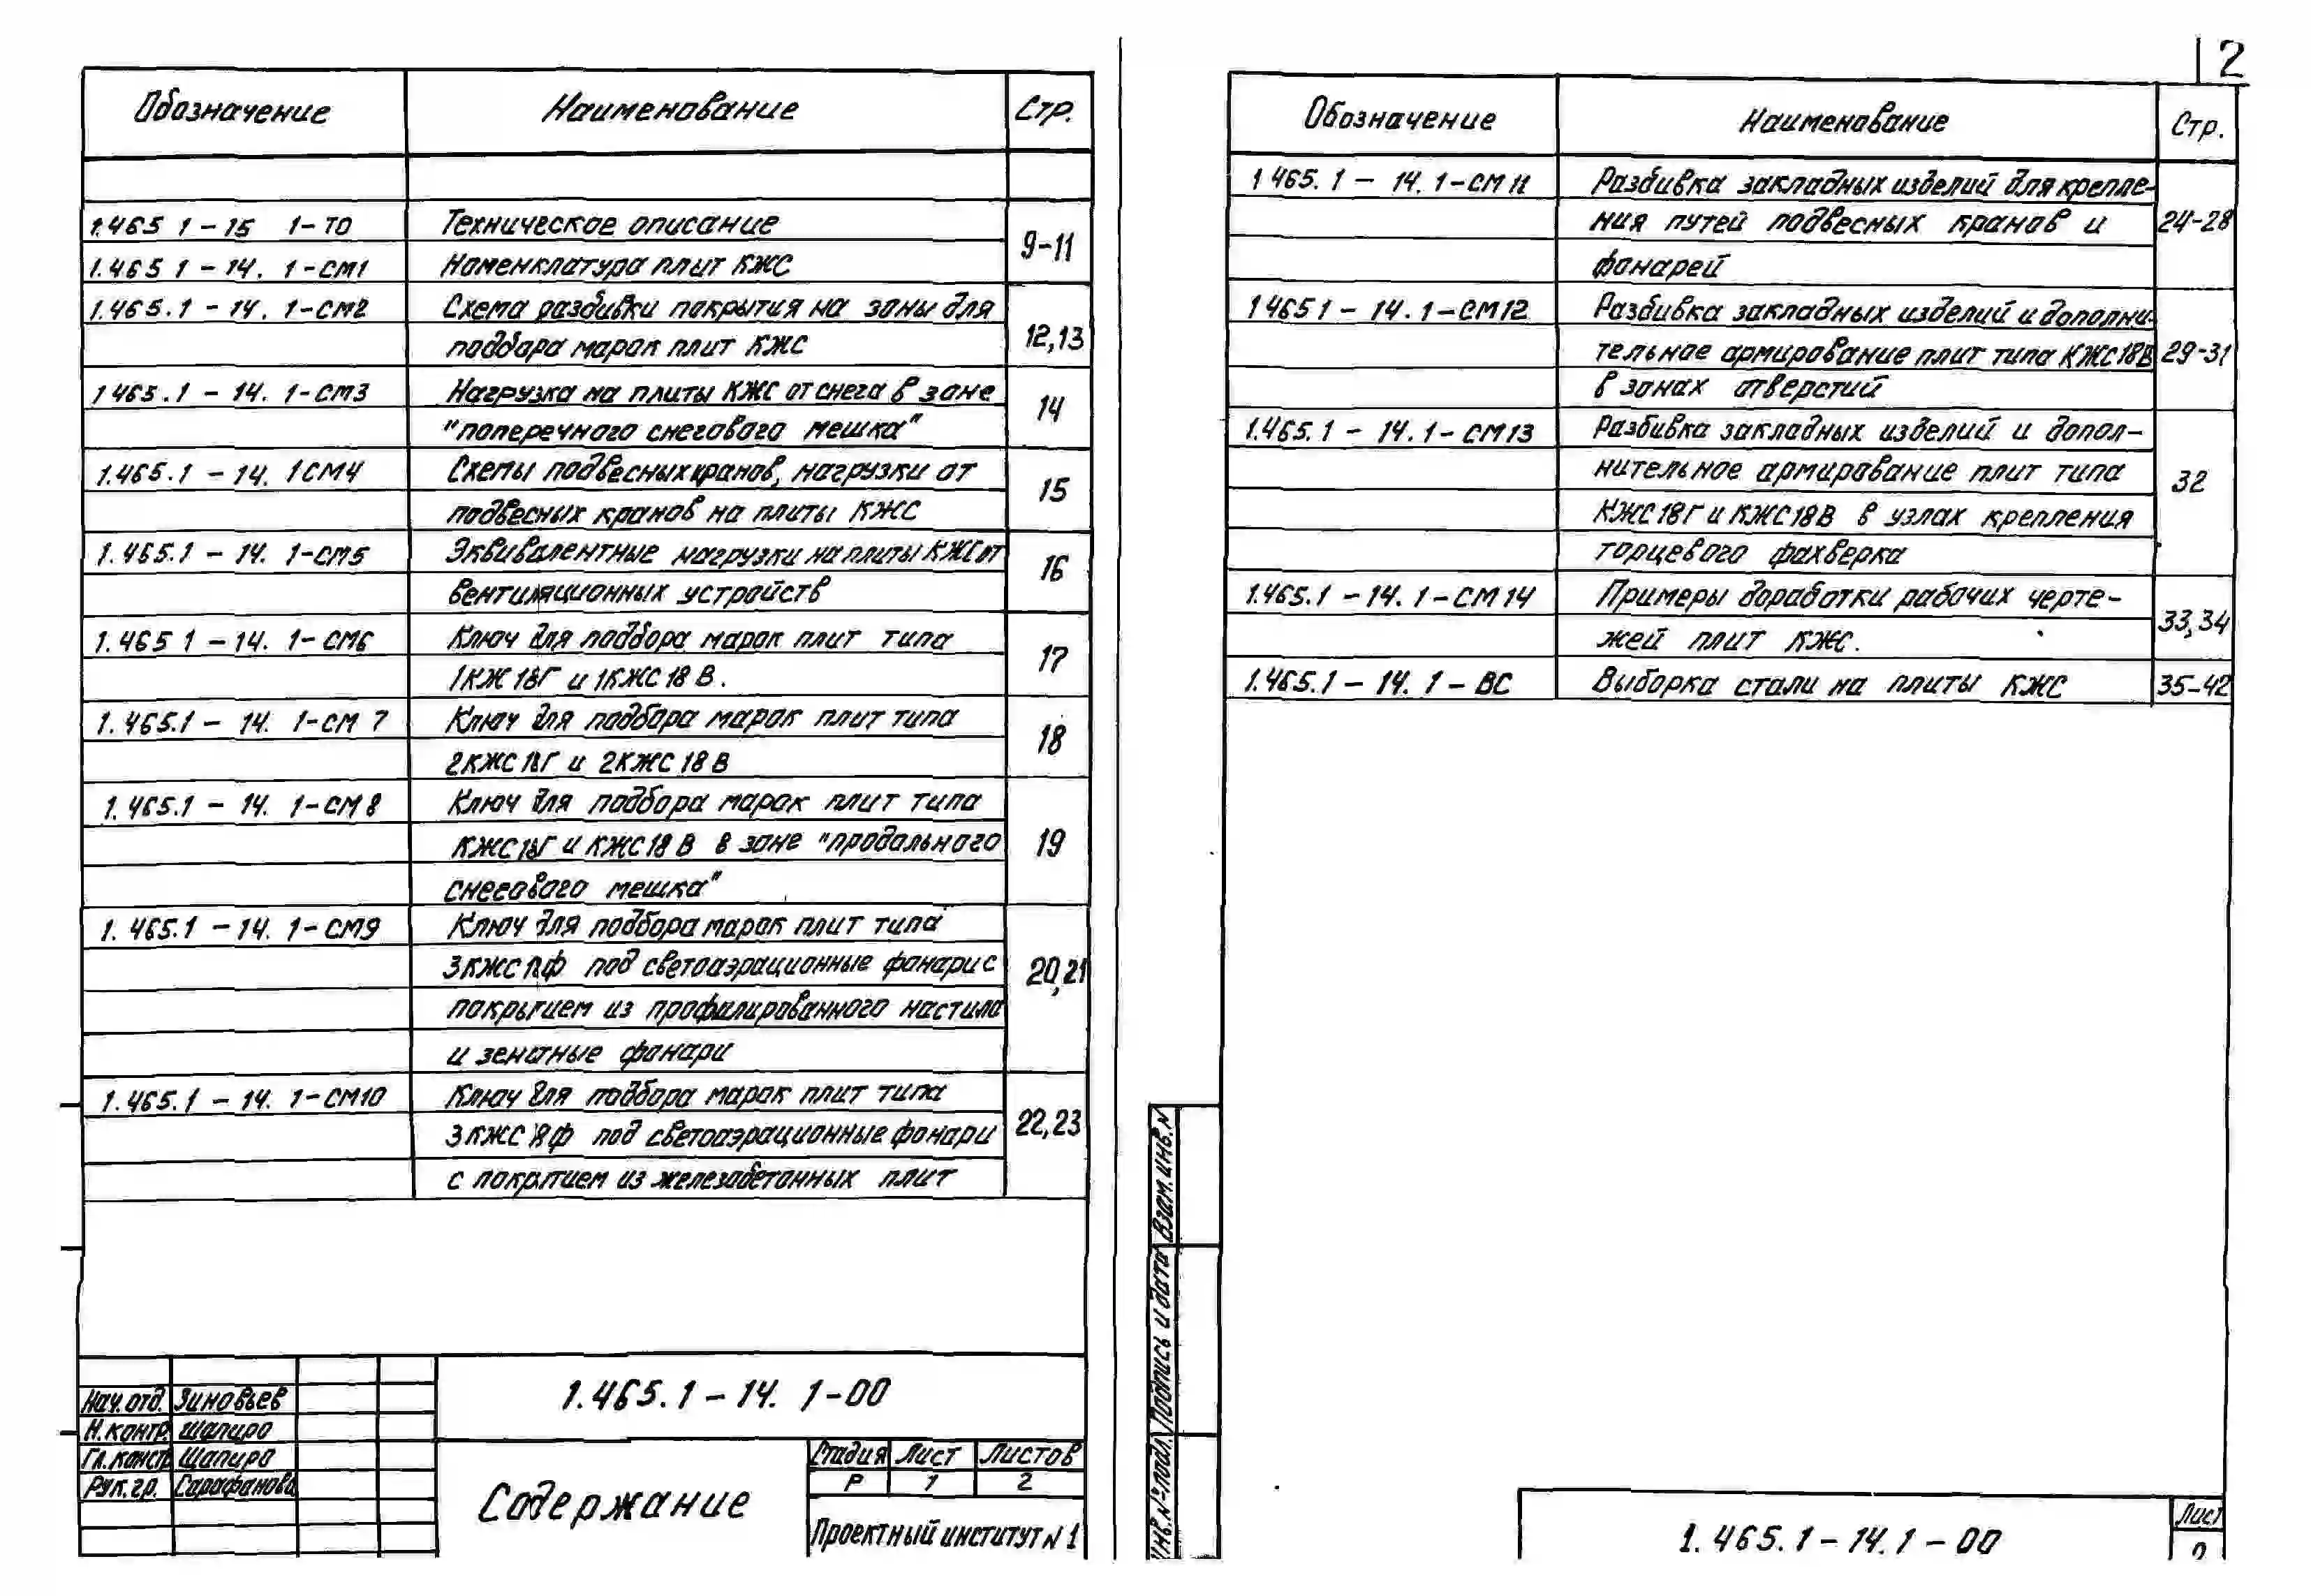 2
Обозначение Наименование Стр.
1.465 1 - 15 1-ТО Техническое описание
9-11
1.465 1 - 14. 1-СМ1 Номенклатура плит КЖС
1.465.1 - 14. 1-СМ2 Схема разбивки покрытия на зоны для
подбора марок плит КЖС 12,13
1 465.1 - 14. 1-СМ3 Нагрузка на плиты КЖС от снега в зоне
"поперечного снегового мешка" 14
1.465.1 - 14. 1СМ4 Схемы подвесных кранов, нагрузки от
подвесных кранов на плиты КЖС 15
1.465.1 - 14. 1-СМ5 Эквивалентные нагрузки на плиты КЖС от
вентиляционных устройств 16
1.465 1 - 14. 1-СМ6 Ключ для подбора марок плит типа
1КЖ18Г и 1КЖС18В. 17
1.465.1 - 14. 1-СМ 7 Ключ для подбора марок плит типа
2КЖС18Г и 2КЖС18В 18
1.465.1 - 14. 1-СМ8 Ключ для подбора марок плит типа
КЖС18Г и КЖС18В в зоне "продольного 19
снегового мешка"
1.465.1 - 14. 1-СМ9 Ключ для подбора марок плит типа
под светоаэрационные фонари с 20,21
покрытием из профилированного настила
и зенитные фонари
1.465.1 - 14. 1-СМ10 Ключ для подбора марок плит типа
3КЖС18Ф под светоаэрационные фонари 22,23
с покрытием из железобетонных плит
Нач.отд. Зиновьев
Н.контр. Шапиро
Гл.констр Шапиро
Рук.гр. Сарафанова
1.465.1 - 14. 1-00
Содержание
Стадия Лист Листов
Р 1 2
Проектный институт N 1
Обозначение Наименование Стр.
1 465.1 - 14. 1-СМ11 Разбивка закладных изделий для крепле-
ния путей подвесных кранов и 24-28
фонарей
1 465 1 - 14. 1-СМ12 Разбивка закладных изделий и дополни-
тельное армирование плит типа КЖС18В 29-31
в зонах отверстий
1.465.1 - 14. 1-СМ13 Разбивка закладных изделий и допол-
нительное армирование плит типа 32
КЖС18Г и КЖС18В в узлах крепления
торцевого фахверка
1.465.1 - 14. 1-СМ14 Примеры доработки рабочих черте-
жей плит КЖС. 33,34
1.465.1 - 14. 1-ВС Выборка стали на плиты КЖС 35-42
Взам.инв.N
Подпись и дата
Инв.№подл.
1.465.1 - 14. 1 - 00
Лист